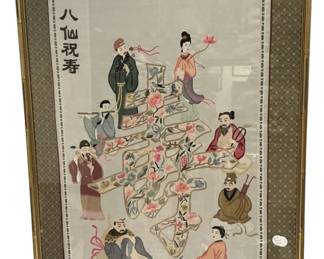 八仙祝寿
壽